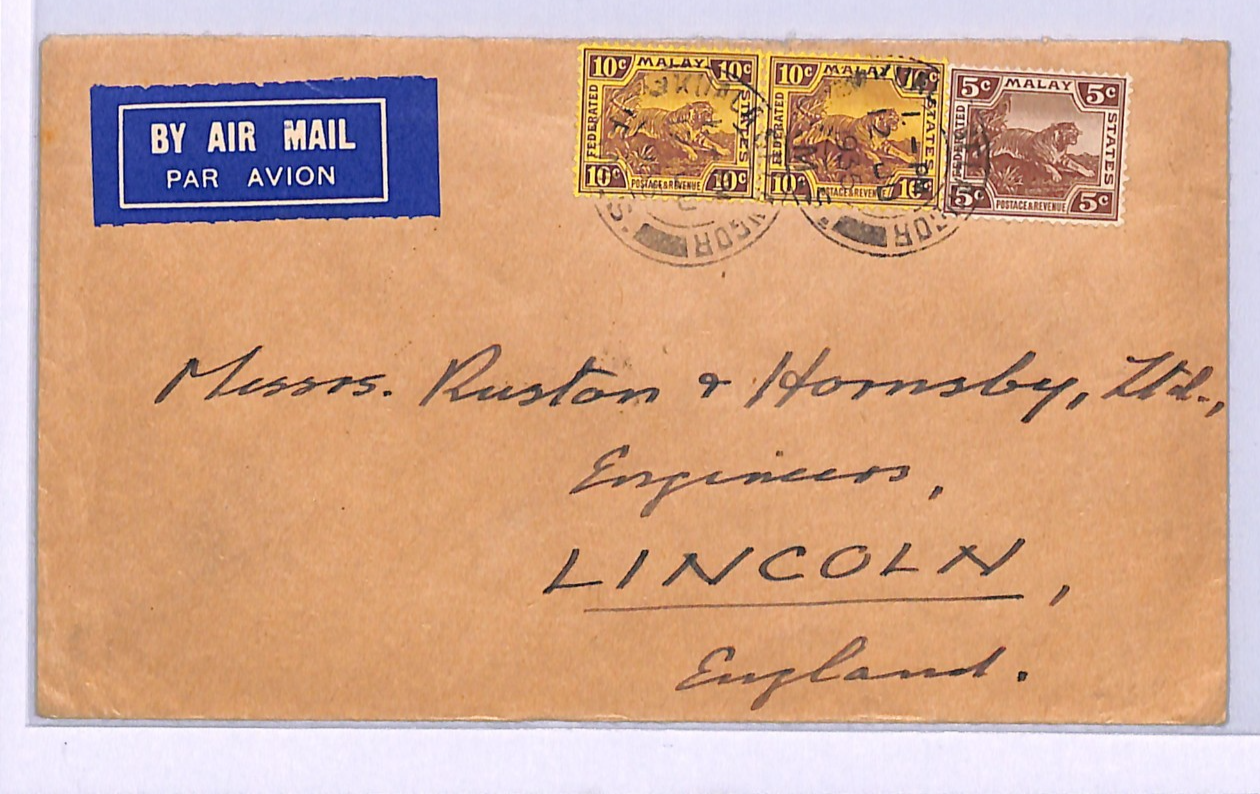 BY AIR MAIL
PAR AVION
10c MALAY 10c
FEDERATED
STATES
10c POSTAGE & REVENUE 10c
10c MALAY 10c
FEDERATED
STATES
10c POSTAGE & REVENUE 10c
5c MALAY 5c
FEDERATED
STATES
5c POSTAGE & REVENUE 5c
1 - PM
Messrs. Ruston & Hornsby, Ltd.,
Engineers,
LINCOLN,
England.